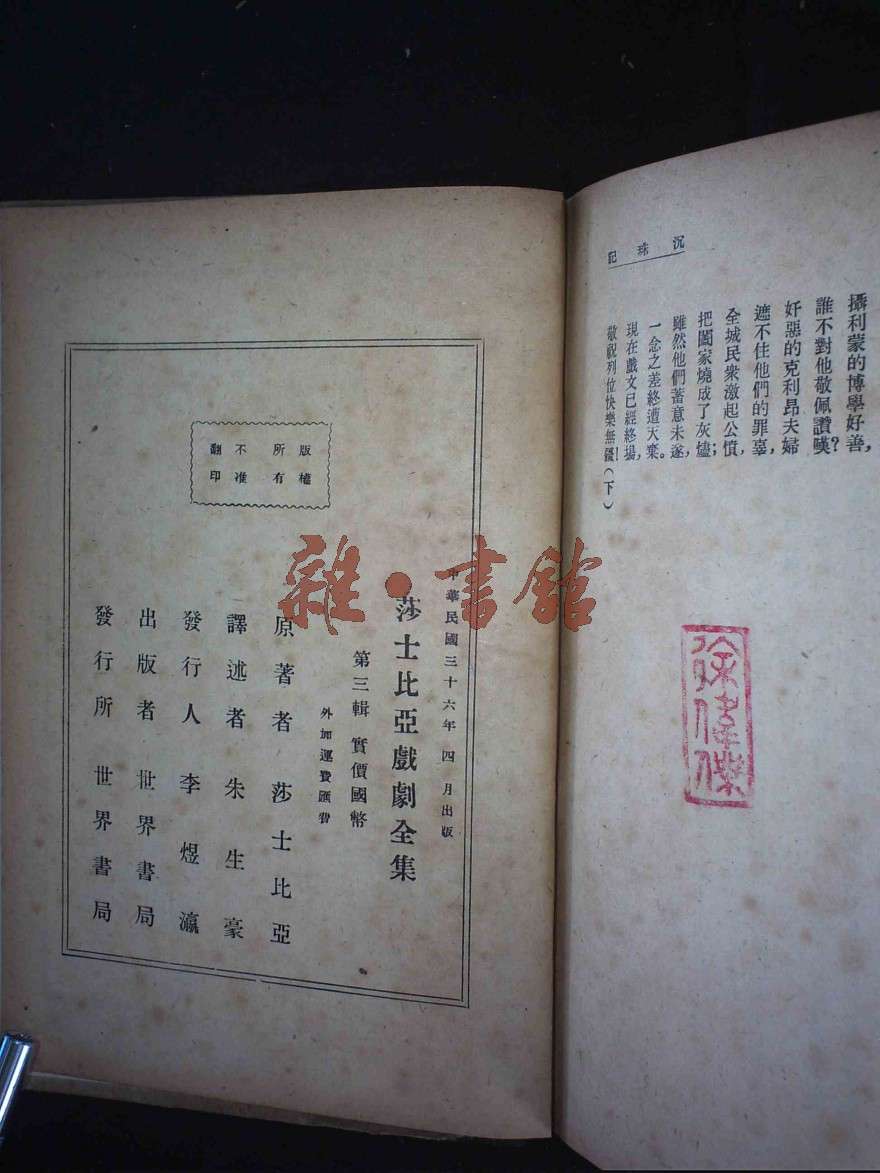 沉珠記
攝利蒙的博學好善，
誰不對他敬佩讚嘆？
奸惡的克利昂夫婦
遮不住他們的罪辜，
全城民衆激起公憤，
把闔家燒成了灰燼；
雖然他們蓄意未遂，
一念之差終遭天棄。
現在戲文已經終場，
敬祝列位快樂無疆！（下）
徐偉傑
版權所有
不准翻印
中華民國三十六年四月出版
莎士比亞戲劇全集
第三輯 實價國幣
外加運費匯費
原著者 莎士比亞
譯述者 朱生豪
發行人 李煜瀛
出版者 世界書局
發行所 世界書局
雜·書館